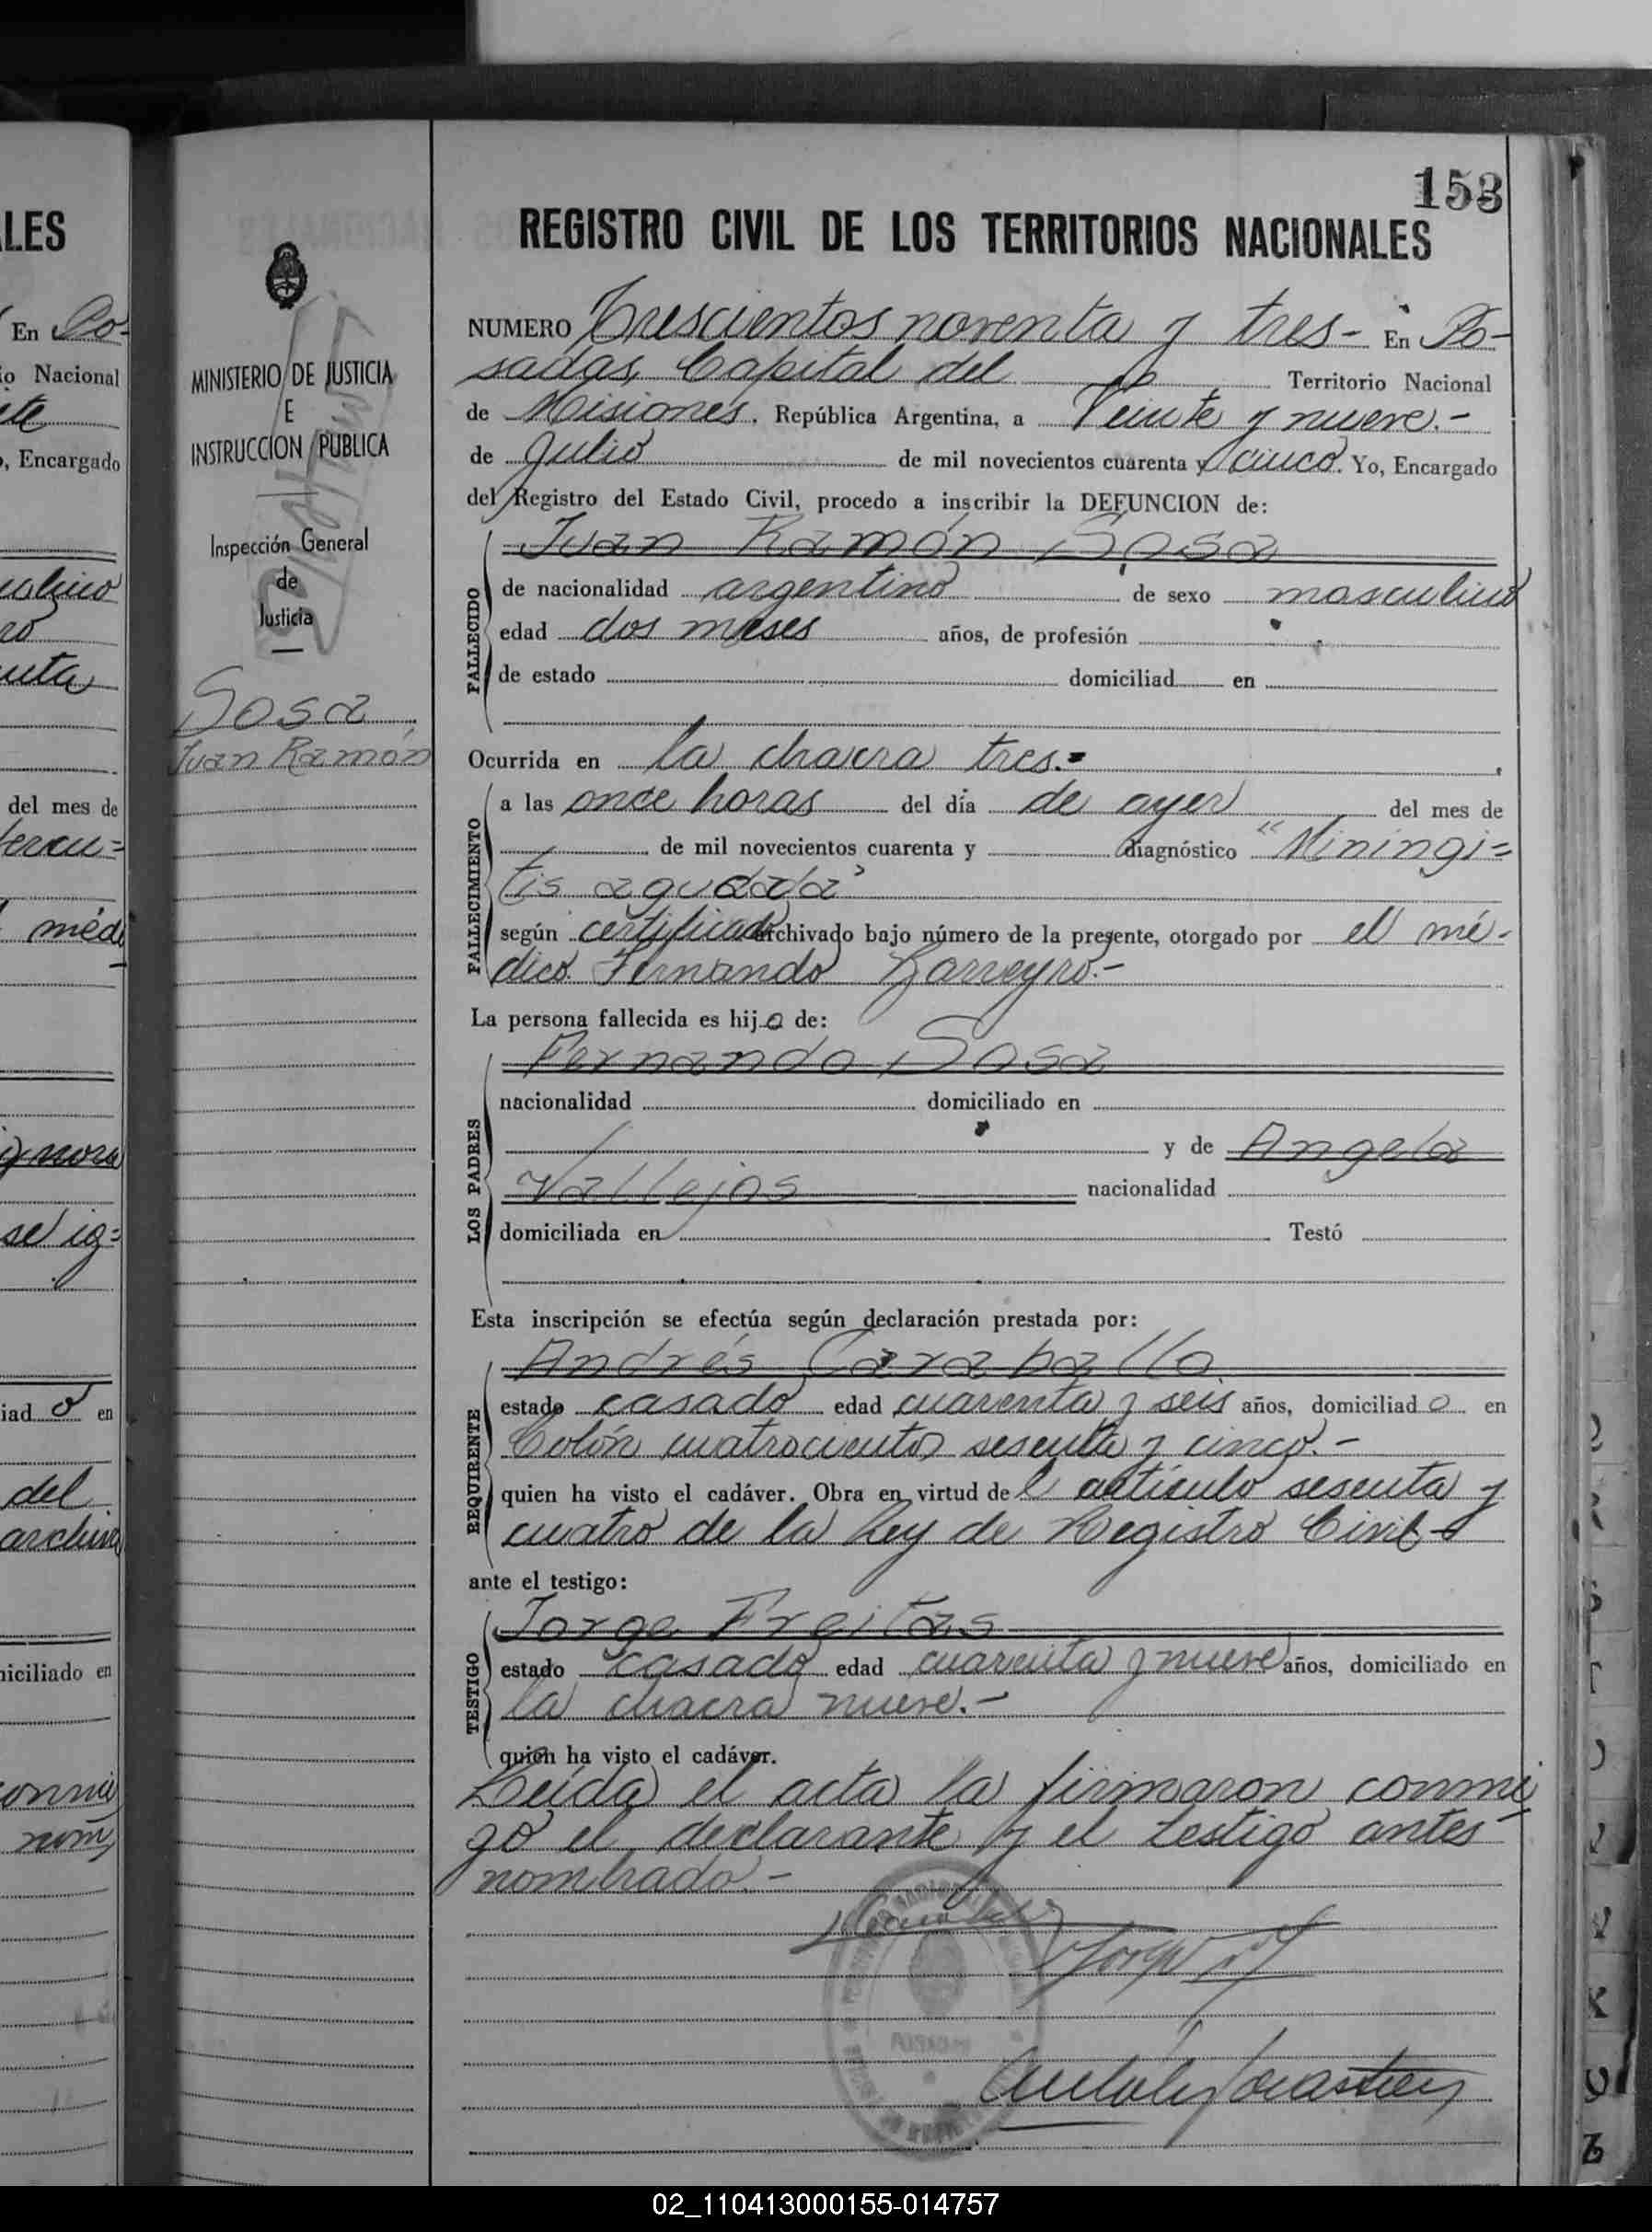 153
LES
REGISTRO CIVIL DE LOS TERRITORIOS NACIONALES
En Po-
io Nacional
, Encargado
del mes de
médi
se ig=
iad o en
del
archivo
niciliado en
MINISTERIO DE JUSTICIA
E
INSTRUCCION PUBLICA
Inspección General
de
Justicia
Sosa
Juan Ramón
NUMERO Trescientos noventa y tres- En Po-
sadas, Capital del Territorio Nacional
de Misiones. República Argentina, a Veinte y nueve.-
de Julio de mil novecientos cuarenta y cinco. Yo, Encargado
del Registro del Estado Civil, procedo a inscribir la DEFUNCION de:
Juan Ramón Sosa
FALLECIDO
de nacionalidad argentino de sexo masculino
edad dos meses años, de profesión
de estado domiciliad en
Ocurrida en la chacra tres.=
FALLECIMIENTO
a las once horas del día de ayer del mes de
de mil novecientos cuarenta y diagnóstico "Miningi=
tis agudada"
según certificado archivado bajo número de la presente, otorgado por el mé-
dico Fernando Barreyro.-
La persona fallecida es hijo de:
Fernando Sosa
LOS PADRES
nacionalidad domiciliado en
y de Angela
Vallejos nacionalidad
domiciliada en Testó
Esta inscripción se efectúa según declaración prestada por:
Andrés Caraballo
REQUIRENTE
estado casado edad cuarenta y seis años, domiciliado en
Colón cuatrocientos sesenta y cinco.-
quien ha visto el cadáver. Obra en virtud del artículo sesenta y
cuatro de la Ley de Registro Civil-
ante el testigo:
Jorge Freitas
TESTIGO
estado casado edad cuarenta y nueve años, domiciliado en
la chacra nueve.-
quien ha visto el cadáver.
Leída el acta la firmaron conmi
go el declarante y el testigo antes
nombrado.-
02_110413000155-014757